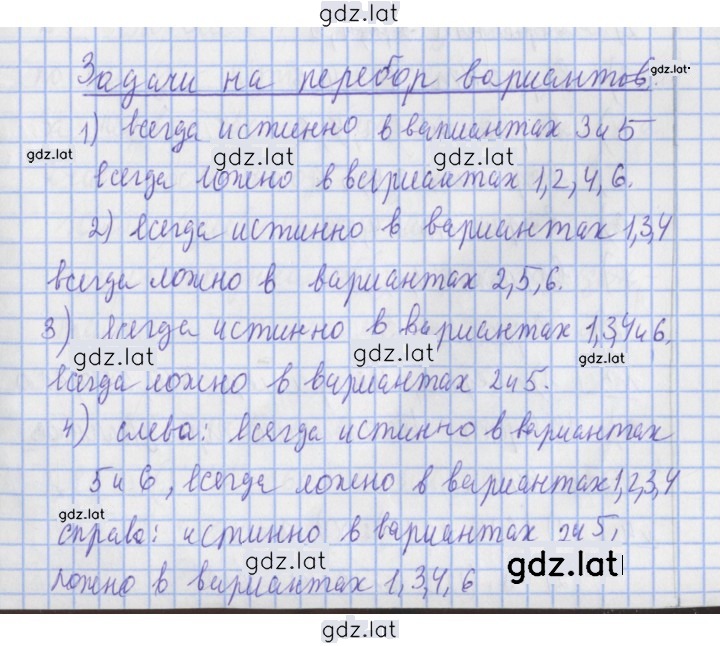 gdz.lat
Задачи на перебор вариантов.
gdz.lat
1) всегда истинно в вариантах 3 и 5
gdz.lat gdz.lat gdz.lat
всегда ложно в вариантах 1, 2, 4, 6.
2) всегда истинно в вариантах 1, 3, 4
всегда ложно в вариантах 2, 5, 6.
3) всегда истинно в вариантах 1, 3, 4 и 6.
gdz.lat gdz.lat gdz.lat
всегда ложно в вариантах 2 и 5.
4) слева: всегда истинно в вариантах
5 и 6, всегда ложно в вариантах 1, 2, 3, 4
gdz.lat
справа: истинно в вариантах 2 и 5,
gdz.lat gdz.lat
ложно в вариантах 1, 3, 4, 6
gdz.lat